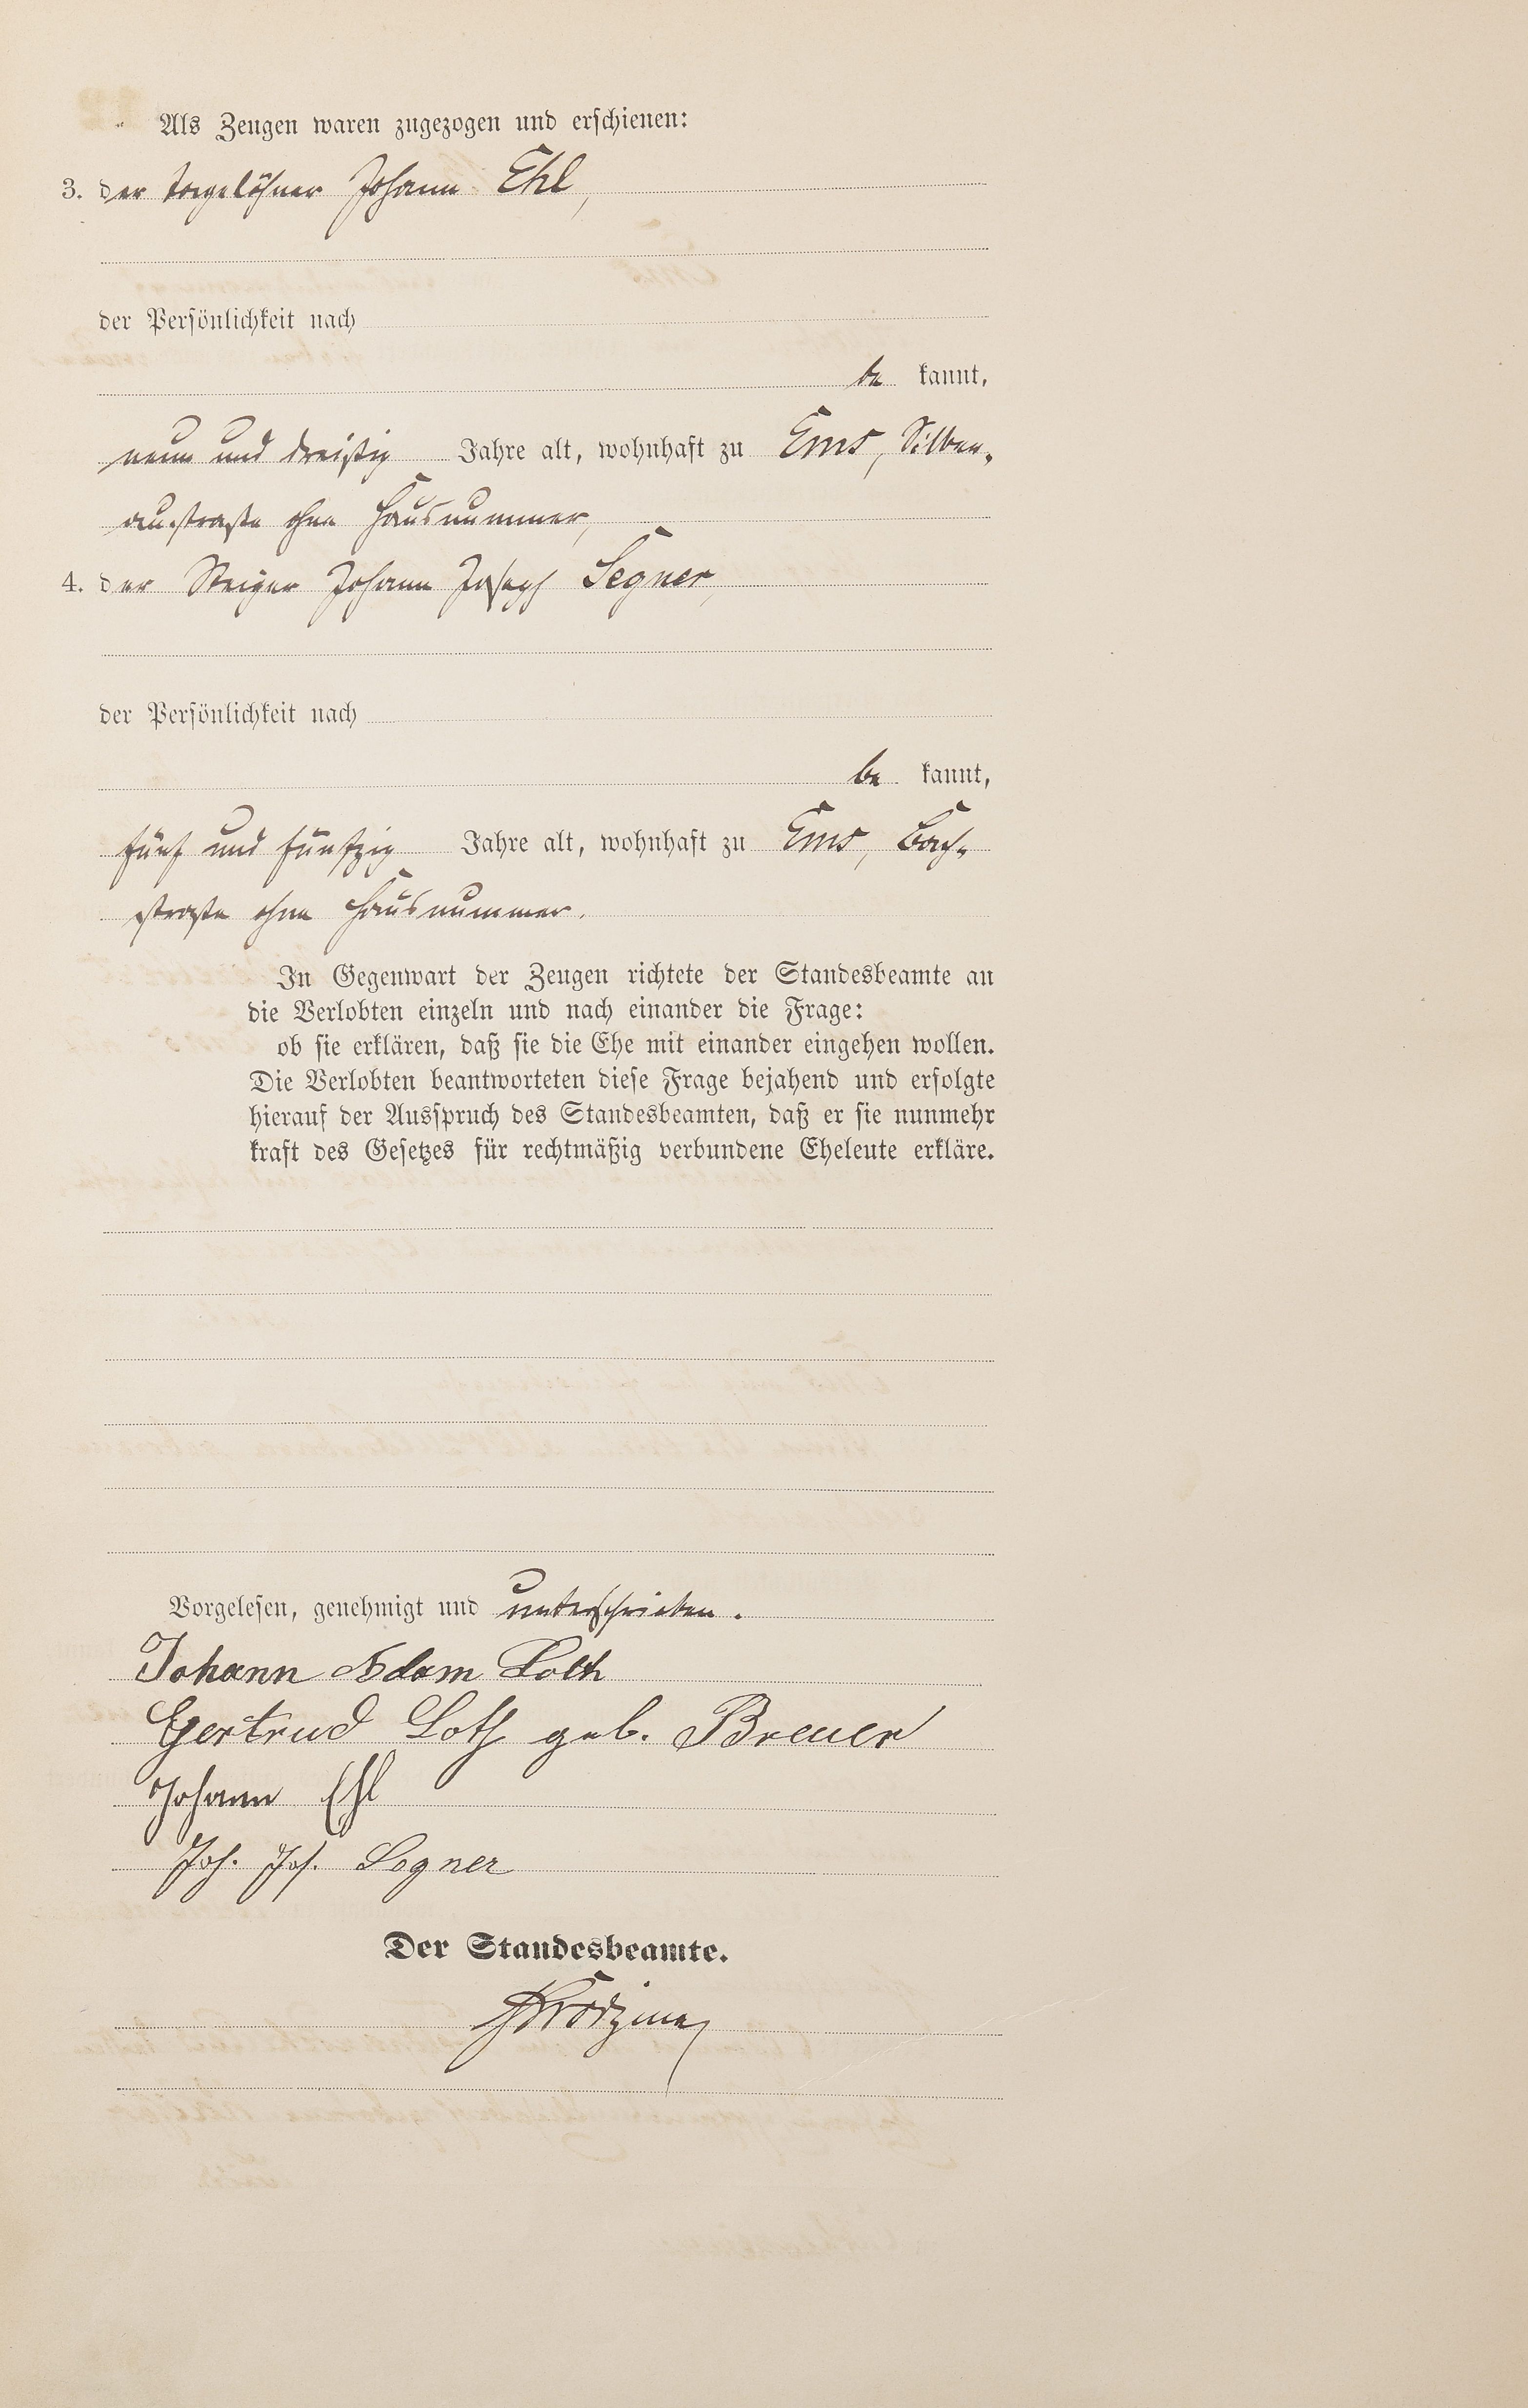 Als Zeugen waren zugezogen und erschienen:
3. der Tagelöhner Johann Ehl,
der Persönlichkeit nach
be kannt,
neun und dreißig Jahre alt, wohnhaft zu Ems, Silber-
austraße ohne Hausnummer,
4. der Steiger Johann Joseph Segner,
der Persönlichkeit nach
be kannt,
fünf und fünfzig Jahre alt, wohnhaft zu Ems, Bach-
straße ohne Hausnummer.
In Gegenwart der Zeugen richtete der Standesbeamte an
die Verlobten einzeln und nach einander die Frage:
ob sie erklären, daß sie die Ehe mit einander eingehen wollen.
Die Verlobten beantworteten diese Frage bejahend und erfolgte
hierauf der Ausspruch des Standesbeamten, daß er sie nunmehr
kraft des Gesetzes für rechtmäßig verbundene Eheleute erkläre.
Vorgelesen, genehmigt und unterschrieben.
Johann Adam Loth
Gertrud Loth geb. Breuer
Johann Ehl
Joh. Jos. Segner
Der Standesbeamte.